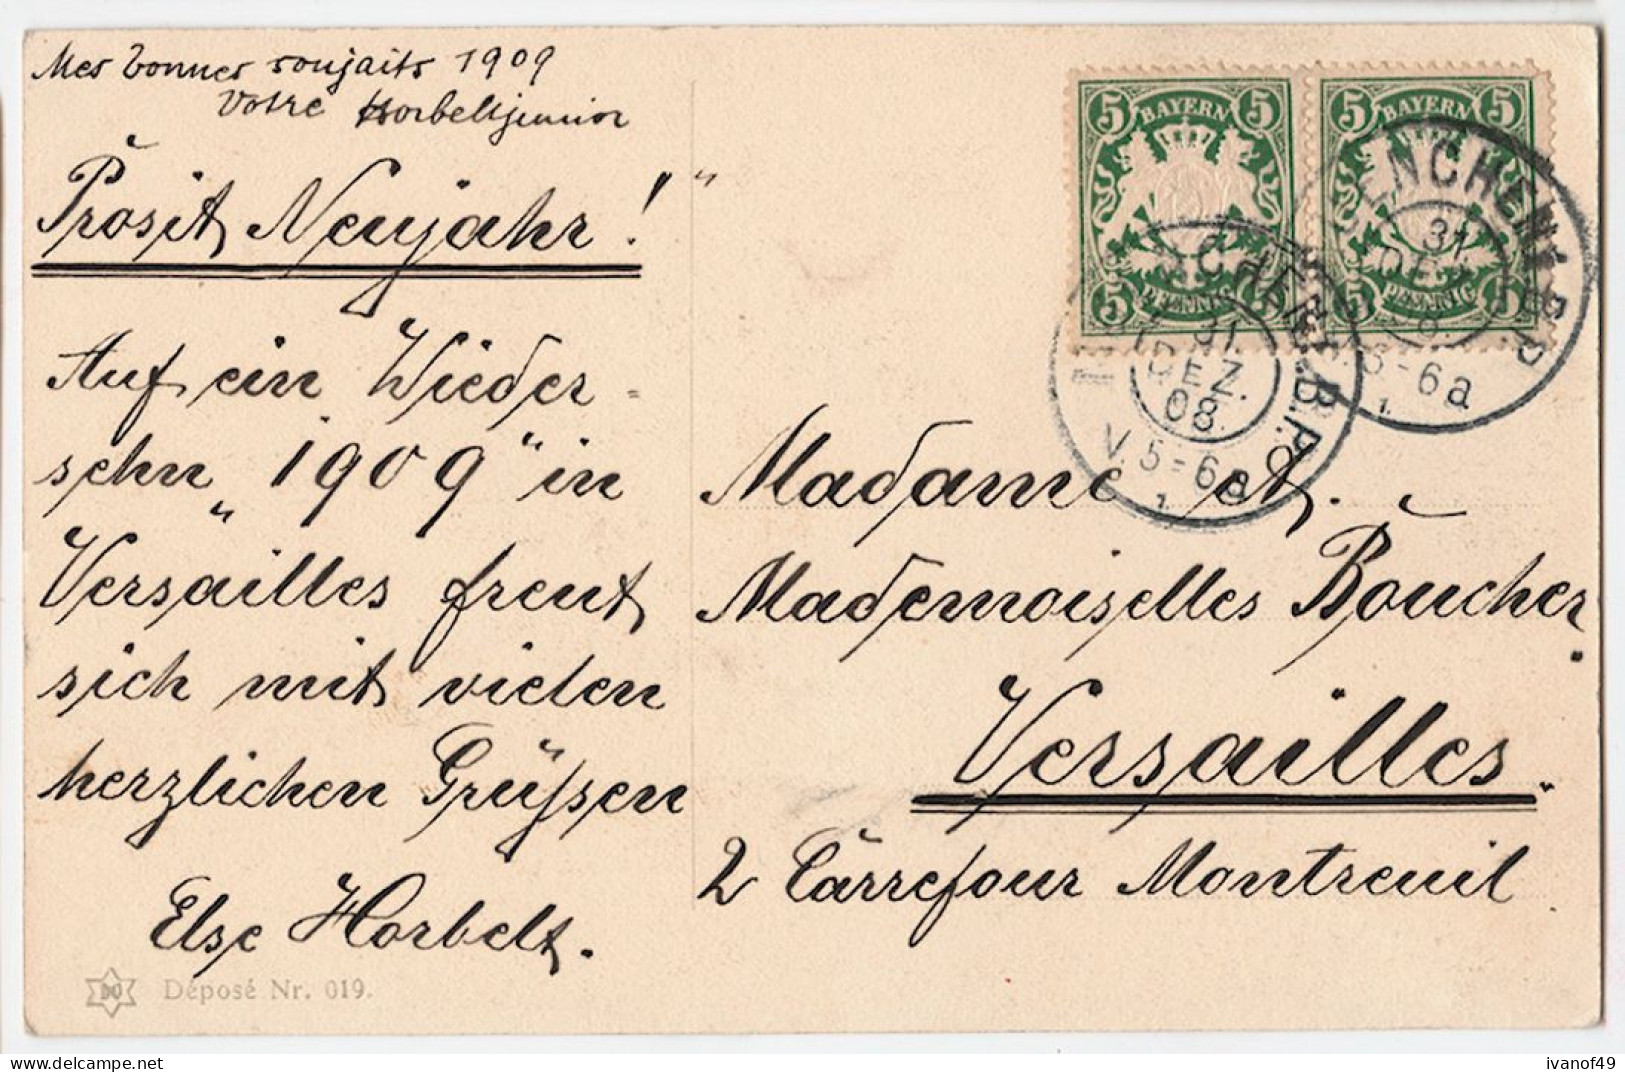 Mes bonnes soujaits 1909
Votre Horbeltjunior
Prosit Neujahr! "
Auf ein Wieder=
sehn „1909“ in
Versailles freut
sich mit vielen
herzlichen Grüßen
Else Horbelt.
DO Déposé Nr. 019.
5 BAYERN 5
5 PFENNIG 5
5 BAYERN 5
5 PFENNIG 5
MUENCHEN B.P.
31
DEZ.
08.
V. 5-6a
1.
MUENCHEN B.P.
31
DEZ.
08
V. 5-6a
1.
Madame et.
Mademoiselles Boucher.
Versailles.
2 Carrefour Montreuil
ivanof49